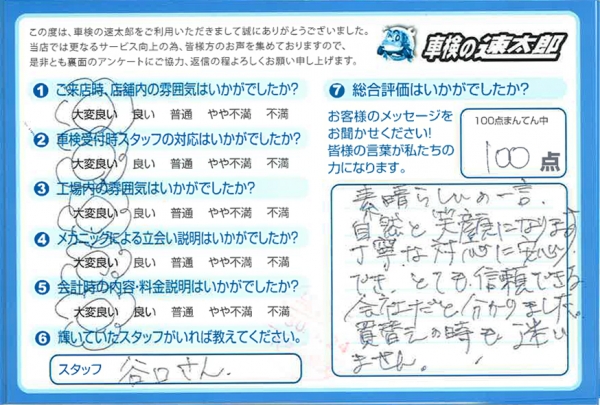 この度は、車検の速太郎をご利用いただきまして誠にありがとうございました。
当店では更なるサービス向上の為、皆様方のお声を集めておりますので、
是非とも裏面のアンケートにご協力、返信の程よろしくお願い申し上げます。
車検の速太郎
1 ご来店時、店舗内の雰囲気はいかがでしたか?
大変良い 良い 普通 やや不満 不満
2 車検受付時スタッフの対応はいかがでしたか?
大変良い 良い 普通 やや不満 不満
3 工場内の雰囲気はいかがでしたか?
大変良い 良い 普通 やや不満 不満
4 メカニックによる立会い説明はいかがでしたか?
大変良い 良い 普通 やや不満 不満
5 会計時の内容・料金説明はいかがでしたか?
大変良い 良い 普通 やや不満 不満
6 輝いていたスタッフがいれば教えてください。
スタッフ 谷口さん
7 総合評価はいかがでしたか?
お客様のメッセージを
お聞かせください!
皆様の言葉が私たちの
力になります。
100点まんてん中
100 点
素晴らしいの一言。
自然と笑顔になります
丁寧な対応に安心
でき、とても信頼できる
会社だと分かりました。
買替えの時も迷い
ません。